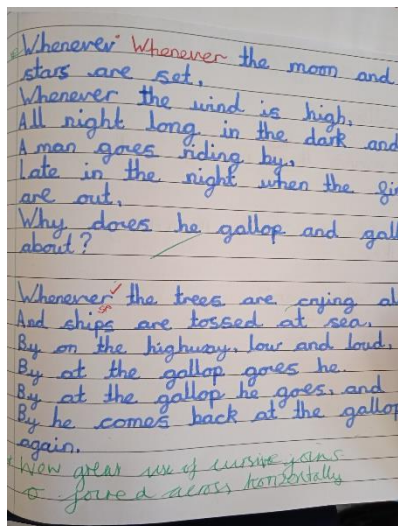 Whenever Whenever the moon and
stars are set,
Whenever the wind is high,
All night long in the dark and
A man goes riding by,
Late in the night when the fir
are out,
Why does he gallop and gall
about?
Whenever the trees are crying al
And ships are tossed at sea,
By on the highway, low and loud,
By at the gallop goes he.
By at the gallop he goes, and
By he comes back at the gallop
again.
Wow great use of cursive joins
joined across horizontally